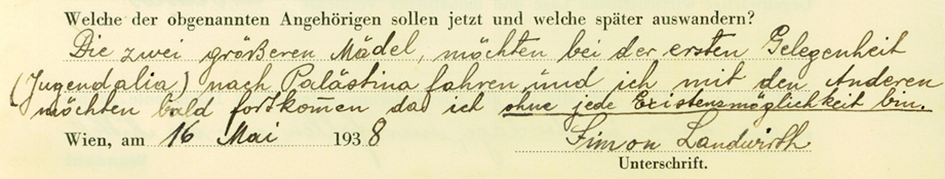 Welche der obgenannten Angehörigen sollen jetzt und welche später auswandern?
Die zwei größeren Mädel, möchten bei der ersten Gelegenheit
(Jugendalia) nach Palästina fahren und ich mit den Anderen
möchten bald fortkom̄en da ich ohne jede Existenzmöglichkeit bin.
Wien, am 16 Mai 1938 Simon Landwirth
Unterschrift.